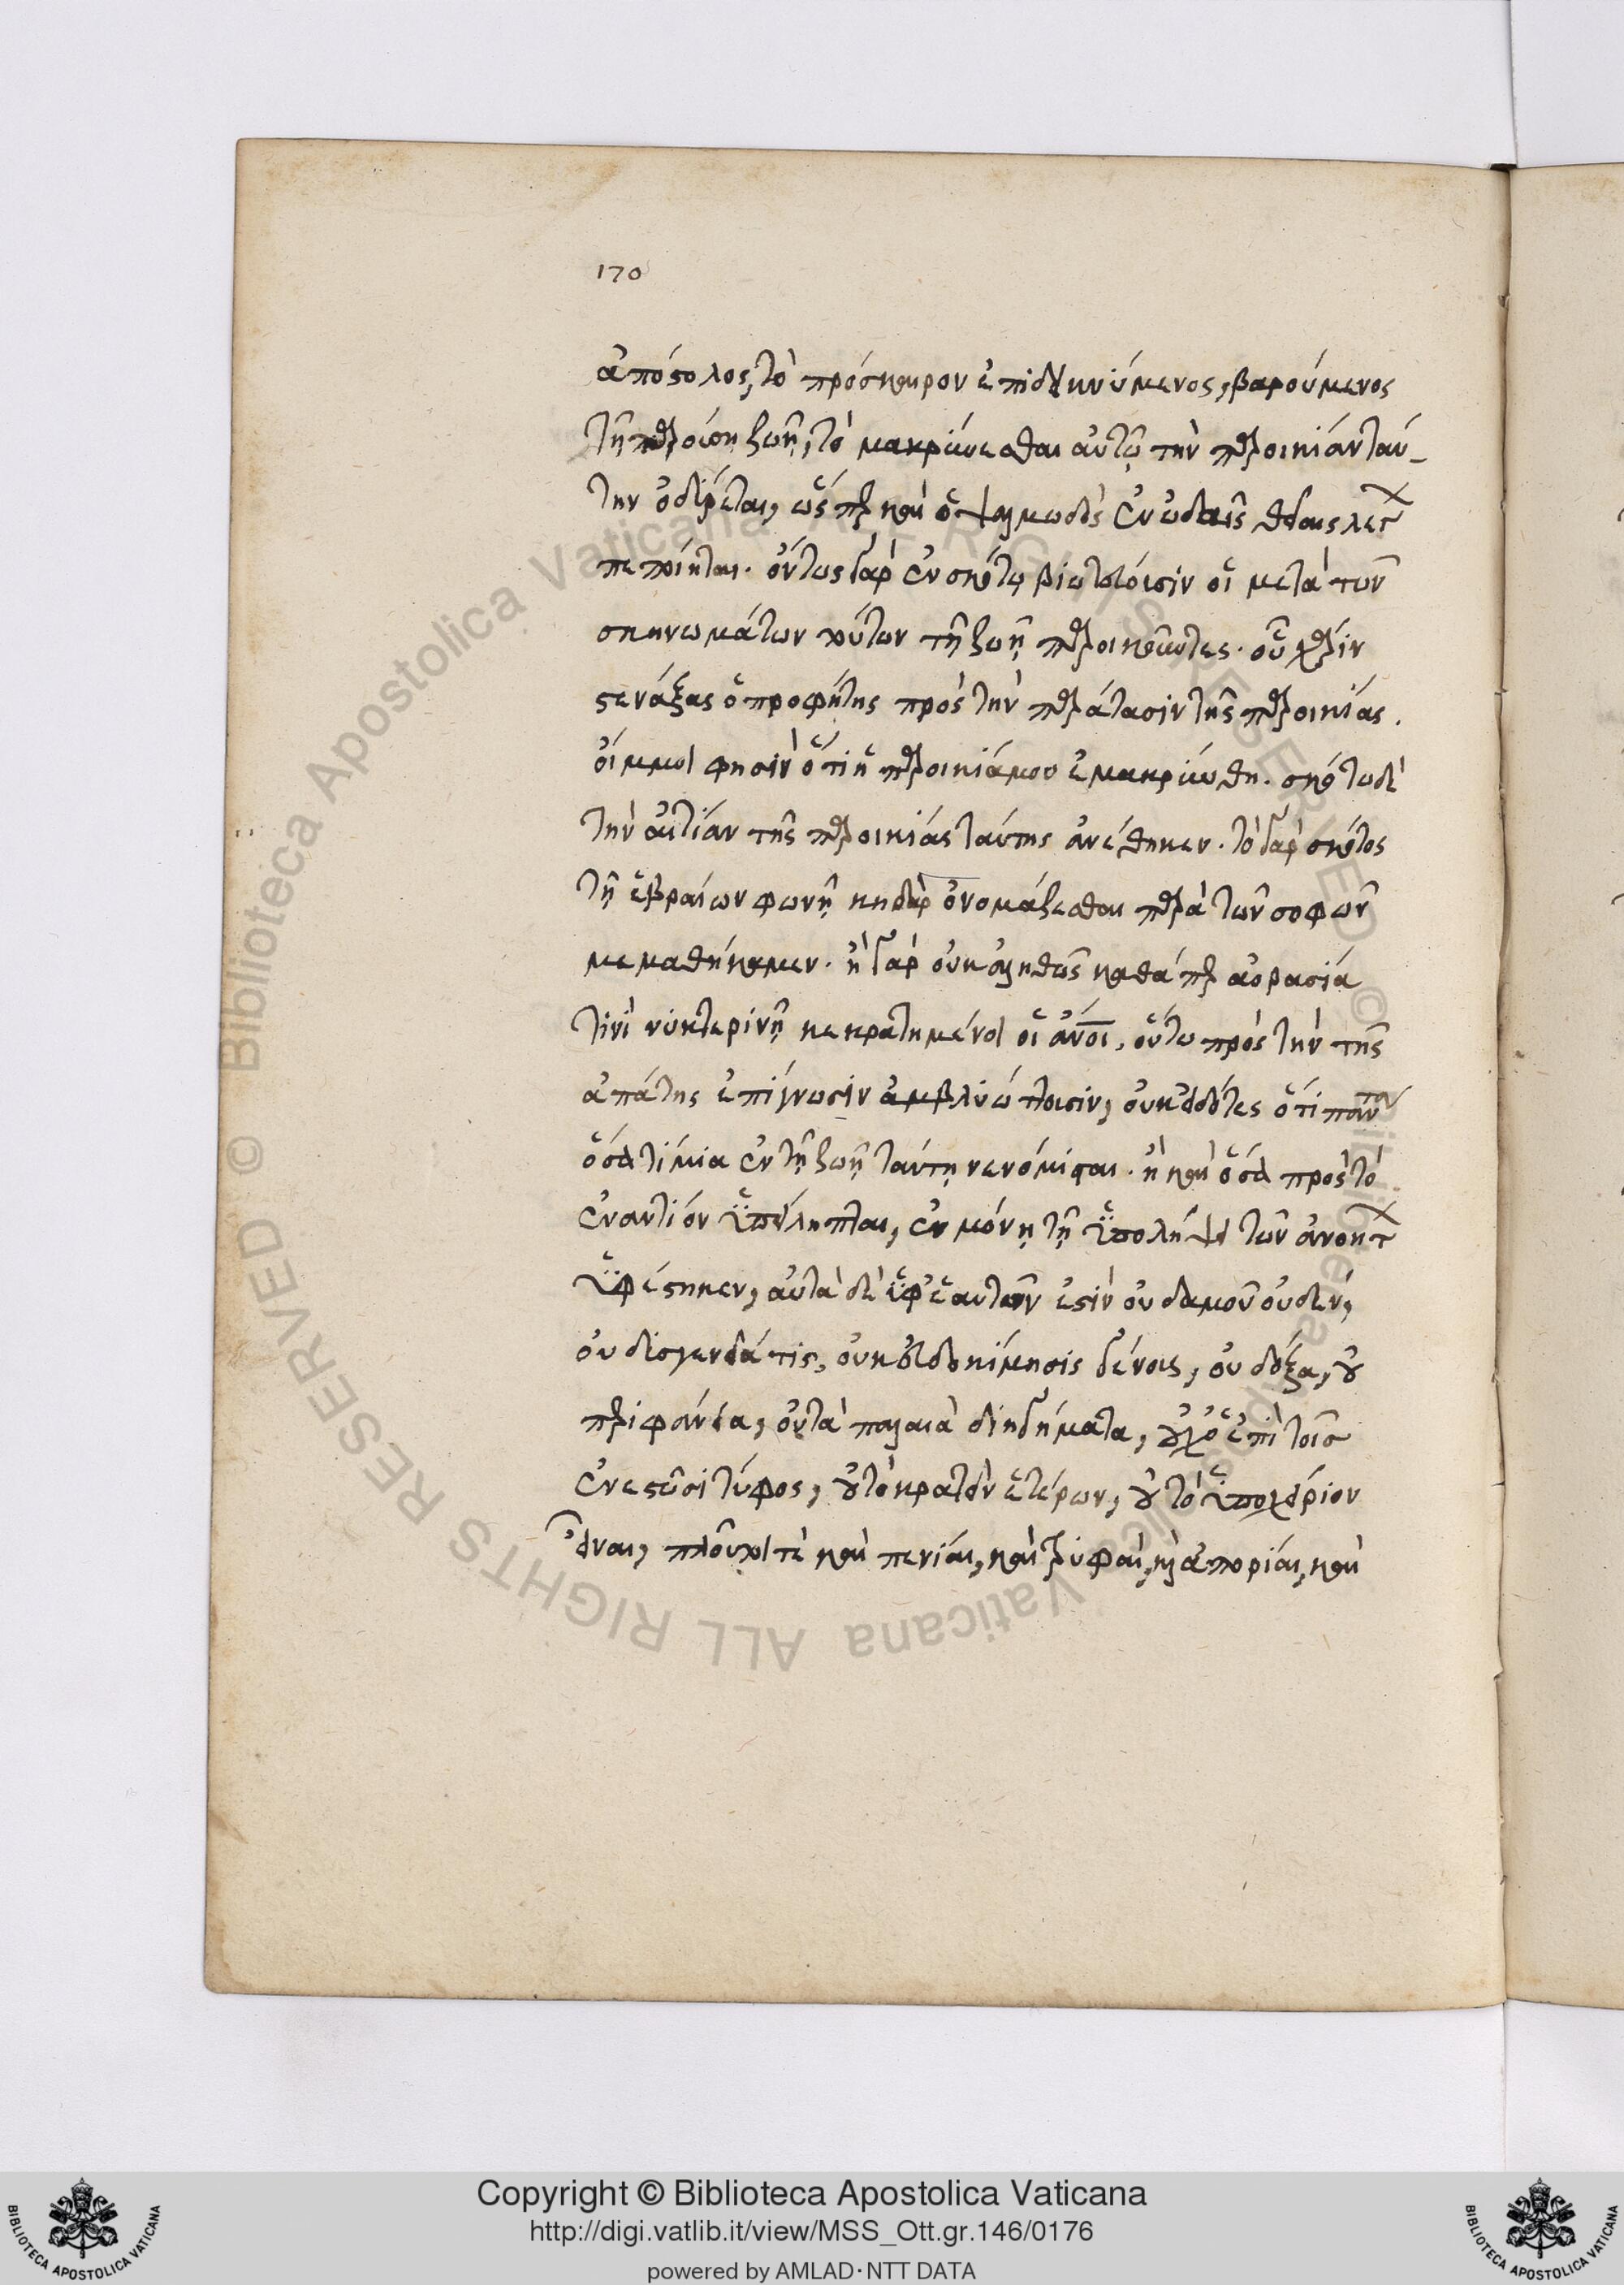 170
ἀπόστολος, τὸ πρόσκαιρον ἐπιδεικνύμενος, βαρούμενος
τῇ παρούσῃ ζωῇ, τὸ μακρύνεσθαι αὐτῷ τὴν παροικίαν ταύ-
την ὀδύρεται, ὥσπερ καὶ ὁ ψαλμωδὸς ἐν ὠδαῖς θείαις λεγ
πεποίηται. ὄντως γὰρ ἐν σκότῳ βιωτεύουσιν οἱ μετὰ τῶν
σκηνωμάτων τούτων τῇ ζωῇ παροικοῦντες. οὗ χάριν
στενάξας ὁ προφήτης πρὸς τὴν παράτασιν τῆς παροικίας.
οἴμμοι φησὶν ὅτι ἡ παροικία μου ἐμακρύνθη. σκότῳ δὲ
τὴν αἰτίαν τῆς παροικίας ταύτης ἀνέθηκεν. τὸ γὰρ σκότος
τῇ ἑβραίων φωνῇ κηδὰρ ὀνομάζεσθαι παρὰ τῶν σοφῶν
μεμαθήκαμεν. ἢ γὰρ οὐκ ἀληθῶς καθάπερ ἀορασία
τινὶ νυκτερινῇ κεκρατημένοι οἱ ἄνοι, οὕτω πρὸς τὴν τῆς
ἀπάτης ἐπίγνωσιν ἀμβλυώπτουσιν, οὐκ εἰδότες ὅτι παν
ὅσα τίμια ἐν τῇ ζωῇ ταύτῃ νενόμισται. ἢ καὶ ὅσα πρὸς τὸ
ἐναντίον ὑπείληπται, ἐν μόνῃ τῇ ὑπολήψει τῶν ἀνοητ
ὑφέστηκεν, αὐτὰ δὲ ἐφ' ἑαυτῶν ἐστὶν οὐδαμοῦ οὐδέν,
οὐ δυσγενειά τις, οὐκ εὐδοκίμησις γένους, οὐ δόξα, οὐ
περιφάνεια, οὐ τὰ παλαιὰ διηγήματα, οὐχ ὁ ἐπὶ τοῖς
ἐνεστῶσι τύφος, οὐ τὸ κρατεῖν ἑτέρων, οὐ τὸ ὑποχείριον
εἶναι, πλοῦτοί τε καὶ πενίαι, καὶ τρυφαὶ, καὶ ἀπορίαι, καὶ
Copyright © Biblioteca Apostolica Vaticana
http://digi.vatlib.it/view/MSS_Ott.gr.146/0176
powered by AMLAD·NTT DATA